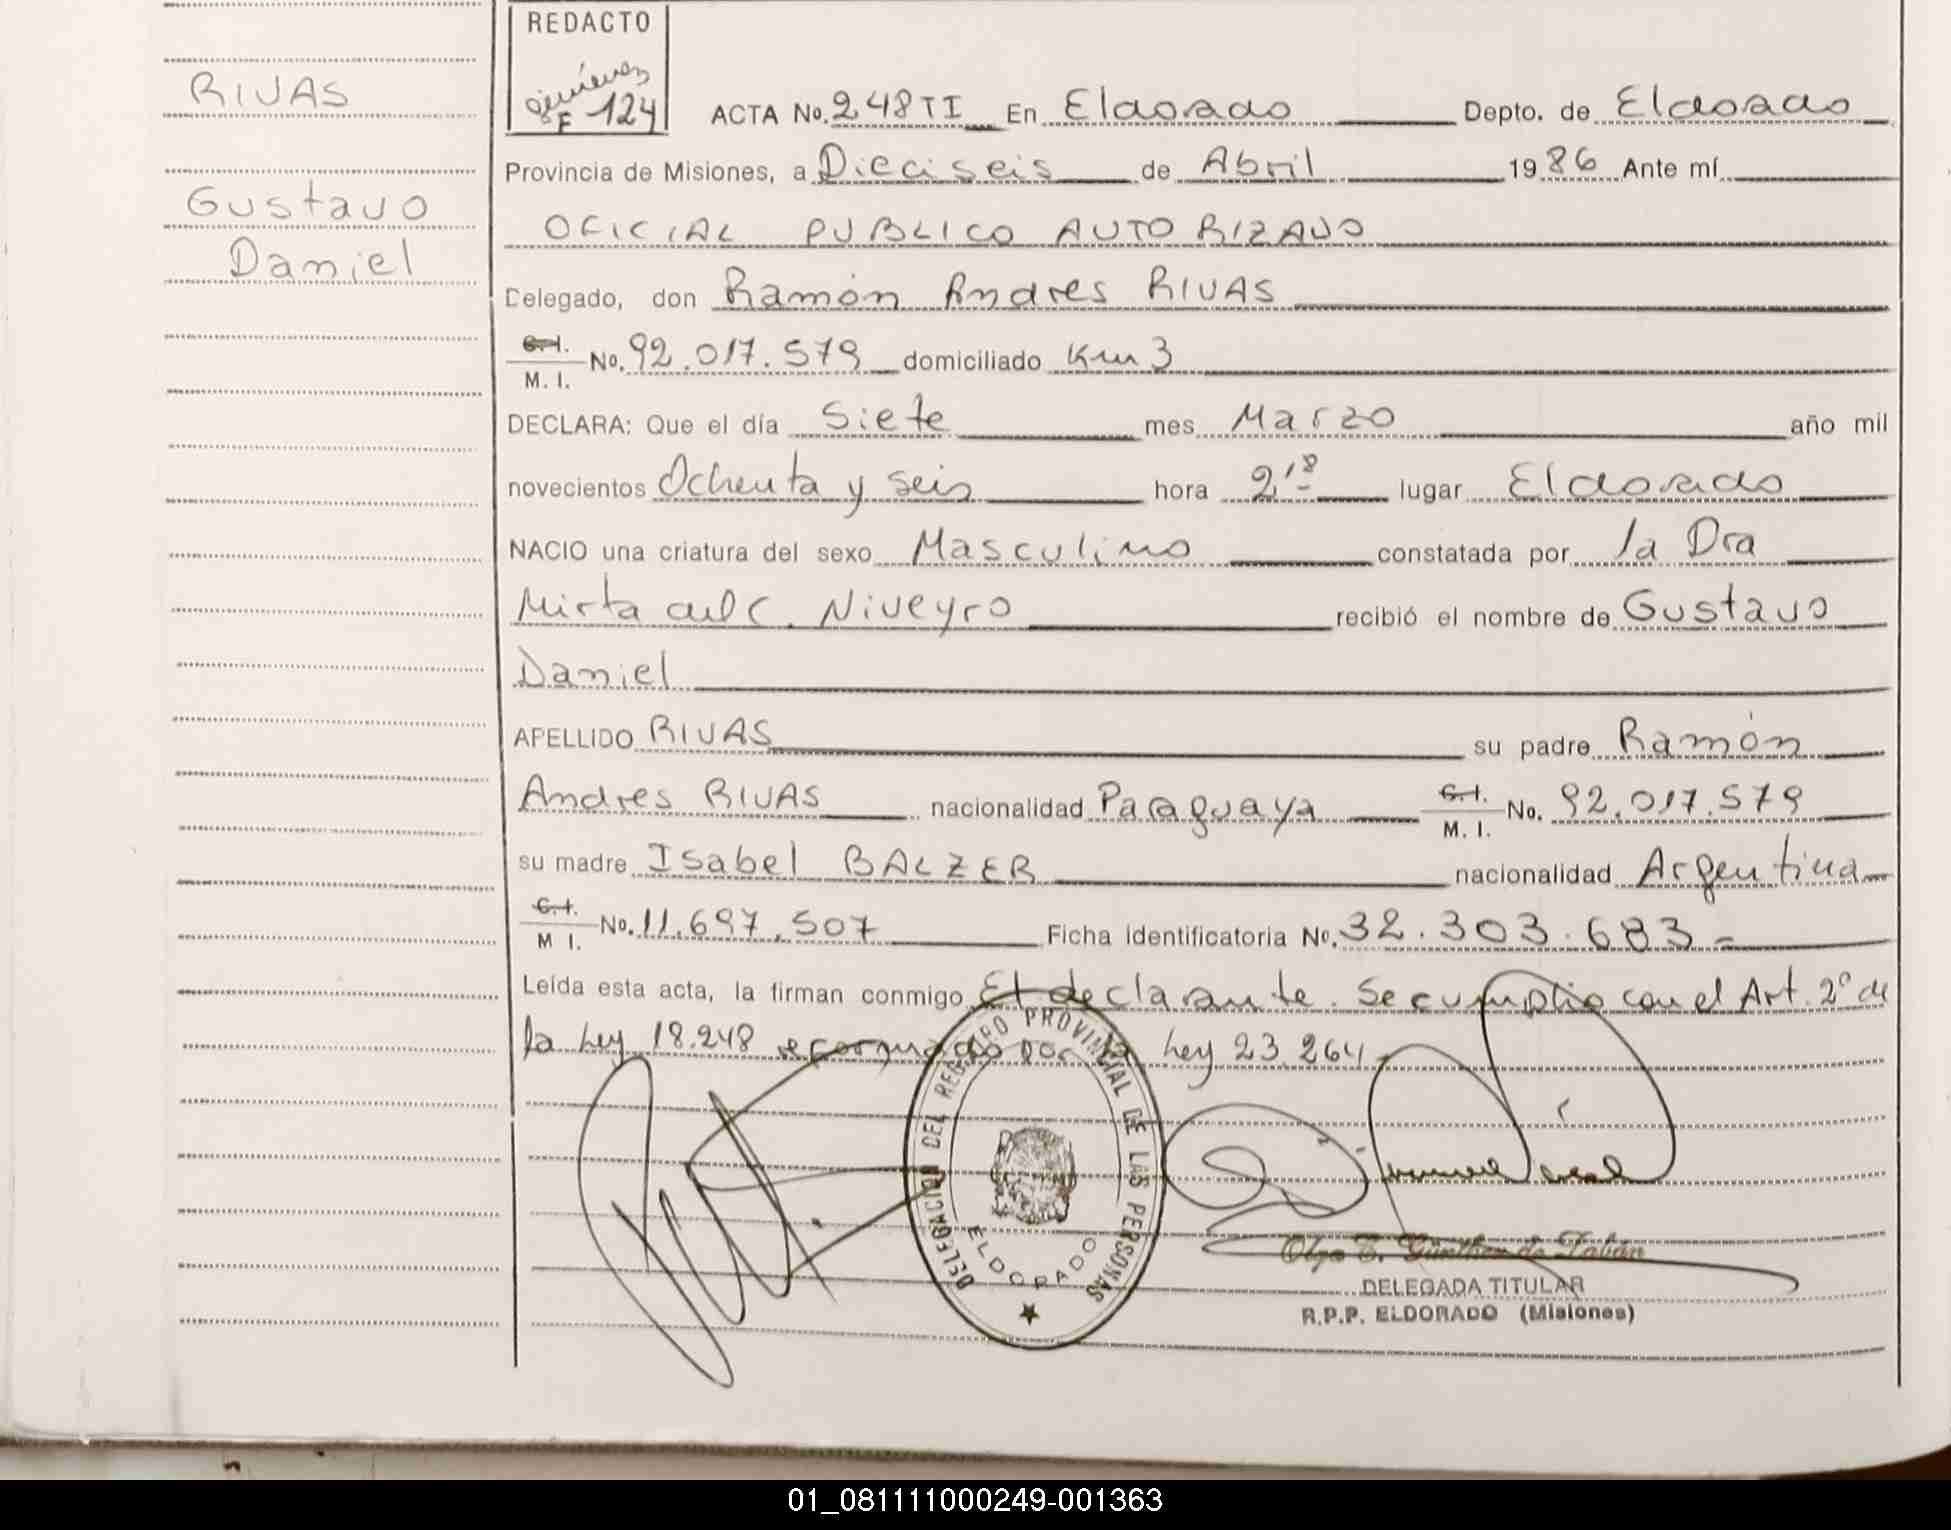 REDACTO
F 124
RIVAS
Gustavo
Daniel
ACTA No. 248 TI En Eldorado Depto. de Eldorado
Provincia de Misiones, a Dieciseis de Abril 1986 Ante mí
OFICIAL PUBLICO AUTORIZADO
Delegado, don Ramón Andres RIVAS
C.I.
M. I. No. 92.017.579 domiciliado Km 3
DECLARA: Que el día Siete mes Marzo año mil
novecientos Ochenta y seis hora lugar Eldorado
NACIO una criatura del sexo Masculino constatada por la Dra
Mirta del C. Niveyro recibió el nombre de Gustavo
Daniel
APELLIDO RIVAS su padre Ramón
Andres RIVAS nacionalidad Paraguaya C.I. M. I. No. 92.017.579
su madre Isabel BALZER nacionalidad Argentina
C.I.
M I. No. 11.697.507 Ficha identificatoria No. 32.303.683-
Leída esta acta, la firman conmigo El declarante. Se cumplio con el Art. 2º de
la Ley 18.248 reformado por la Ley 23.264-
DELEGACION DEL REGISTRO PROVINCIAL DE LAS PERSONAS
ELDORADO
DELEGADA TITULAR
R.P.P. ELDORADO (Misiones)
01_081111000249-001363